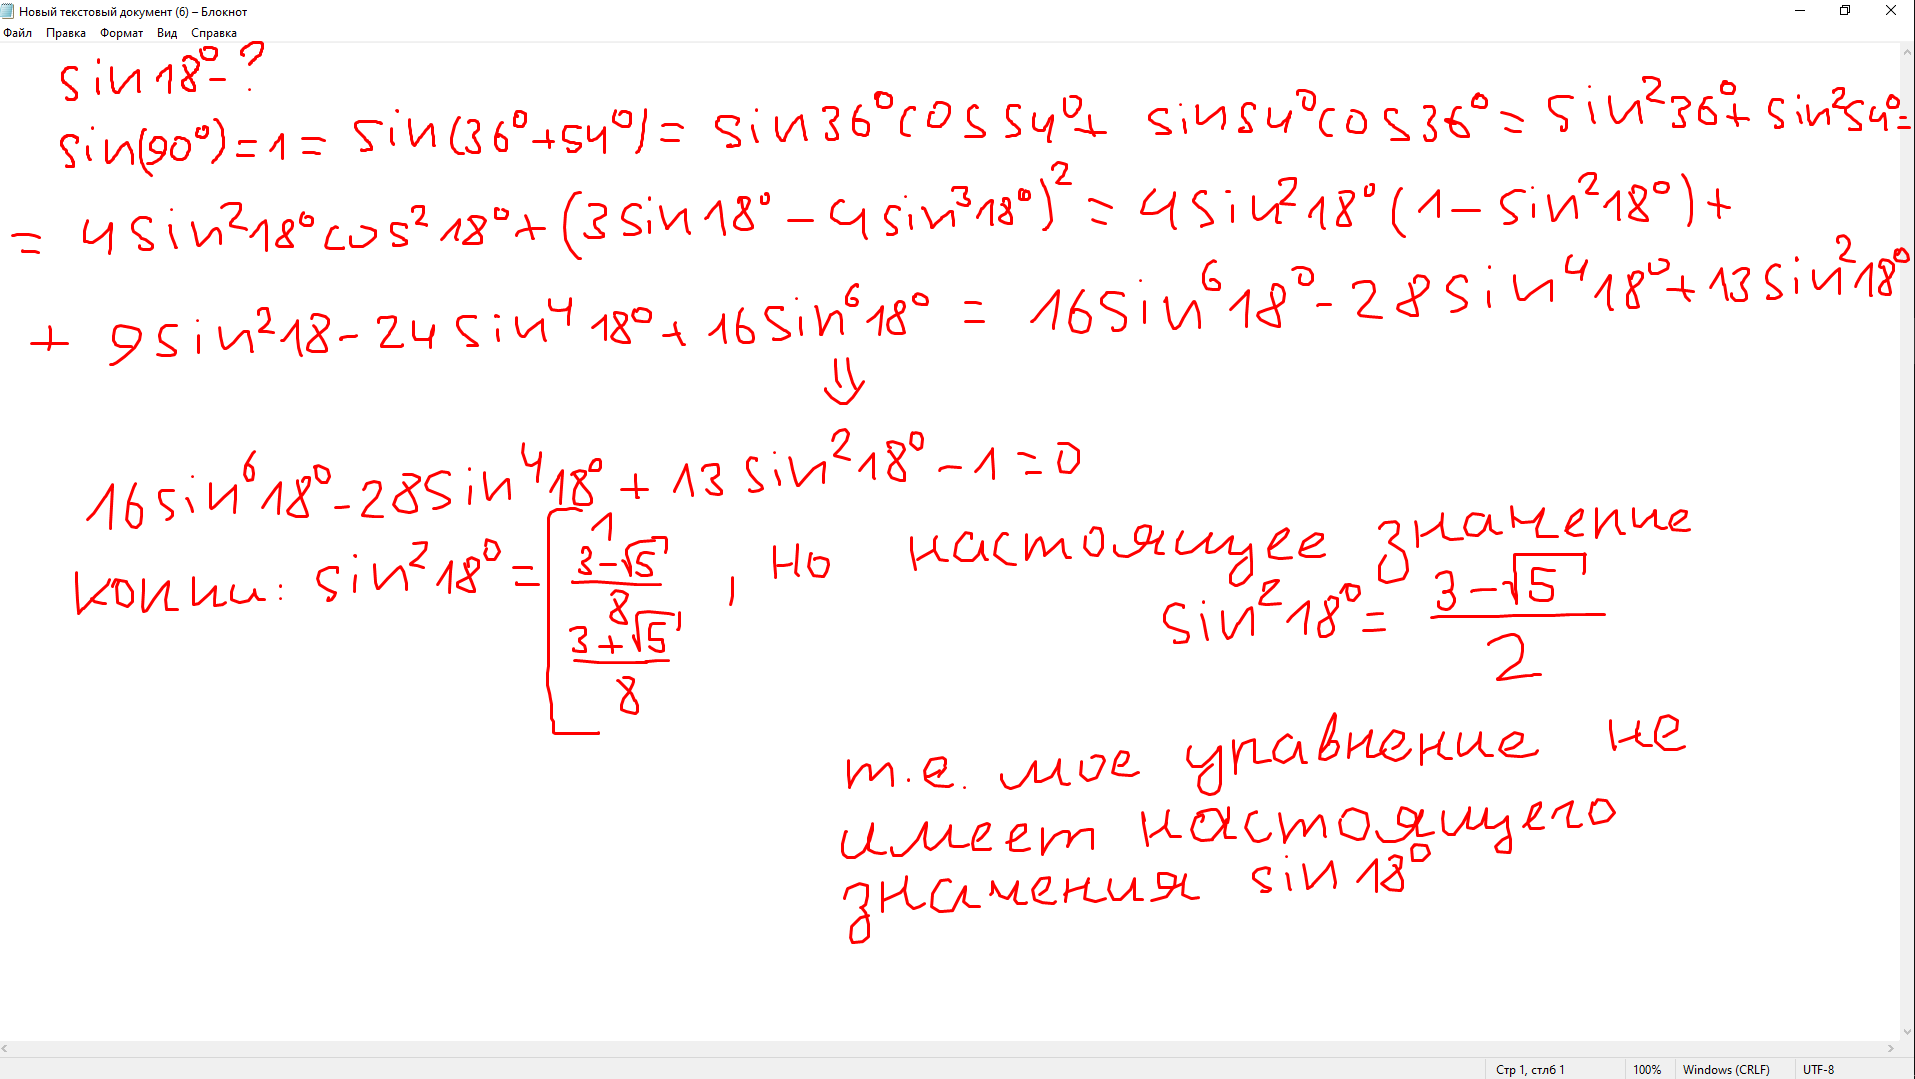 Новый текстовый документ (6) – Блокнот
Файл Правка Формат Вид Справка
sin18° - ?
sin(90°) = 1 = sin(36° + 54°) = sin36°cos54° + sin54°cos36° = sin²36° + sin²54° =
= 4sin²18°cos²18° + (3sin18° - 4sin³18°)² = 4sin²18°(1 - sin²18°) +
+ 9sin²18 - 24sin⁴18° + 16sin⁶18° = 16sin⁶18° - 28sin⁴18° + 13sin²18°
⇓
16sin⁶18° - 28sin⁴18° + 13sin²18° - 1 = 0
корни: sin²18° = [ 1 ; (3-√5)/8 ; (3+√5)/8 , но настоящее значение
sin²18° = (3-√5)/2
т.е. мое уравнение не
имеет настоящего
значения sin18°
Стр 1, стлб 1 100% Windows (CRLF) UTF-8